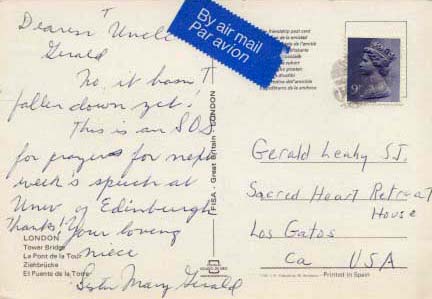 Dearest Uncle
Gerald
No, it hasn't
fallen down yet!
This is an SOS
for prayers for next
week's speech at
Univ of Edinburgh
Thanks! Your loving
niece
Sister Mary Gerald
LONDON
Tower Bridge
Le Pont de la Tour
Ziehbrücke
El Puente de la Torre
FISA - Great Britain - LONDON
By air mail
Par avion
friendship post card
9p
Gerald Leahy SJ.
Sacred Heart Retreat
House
Los Gatos
Ca USA
Printed in Spain